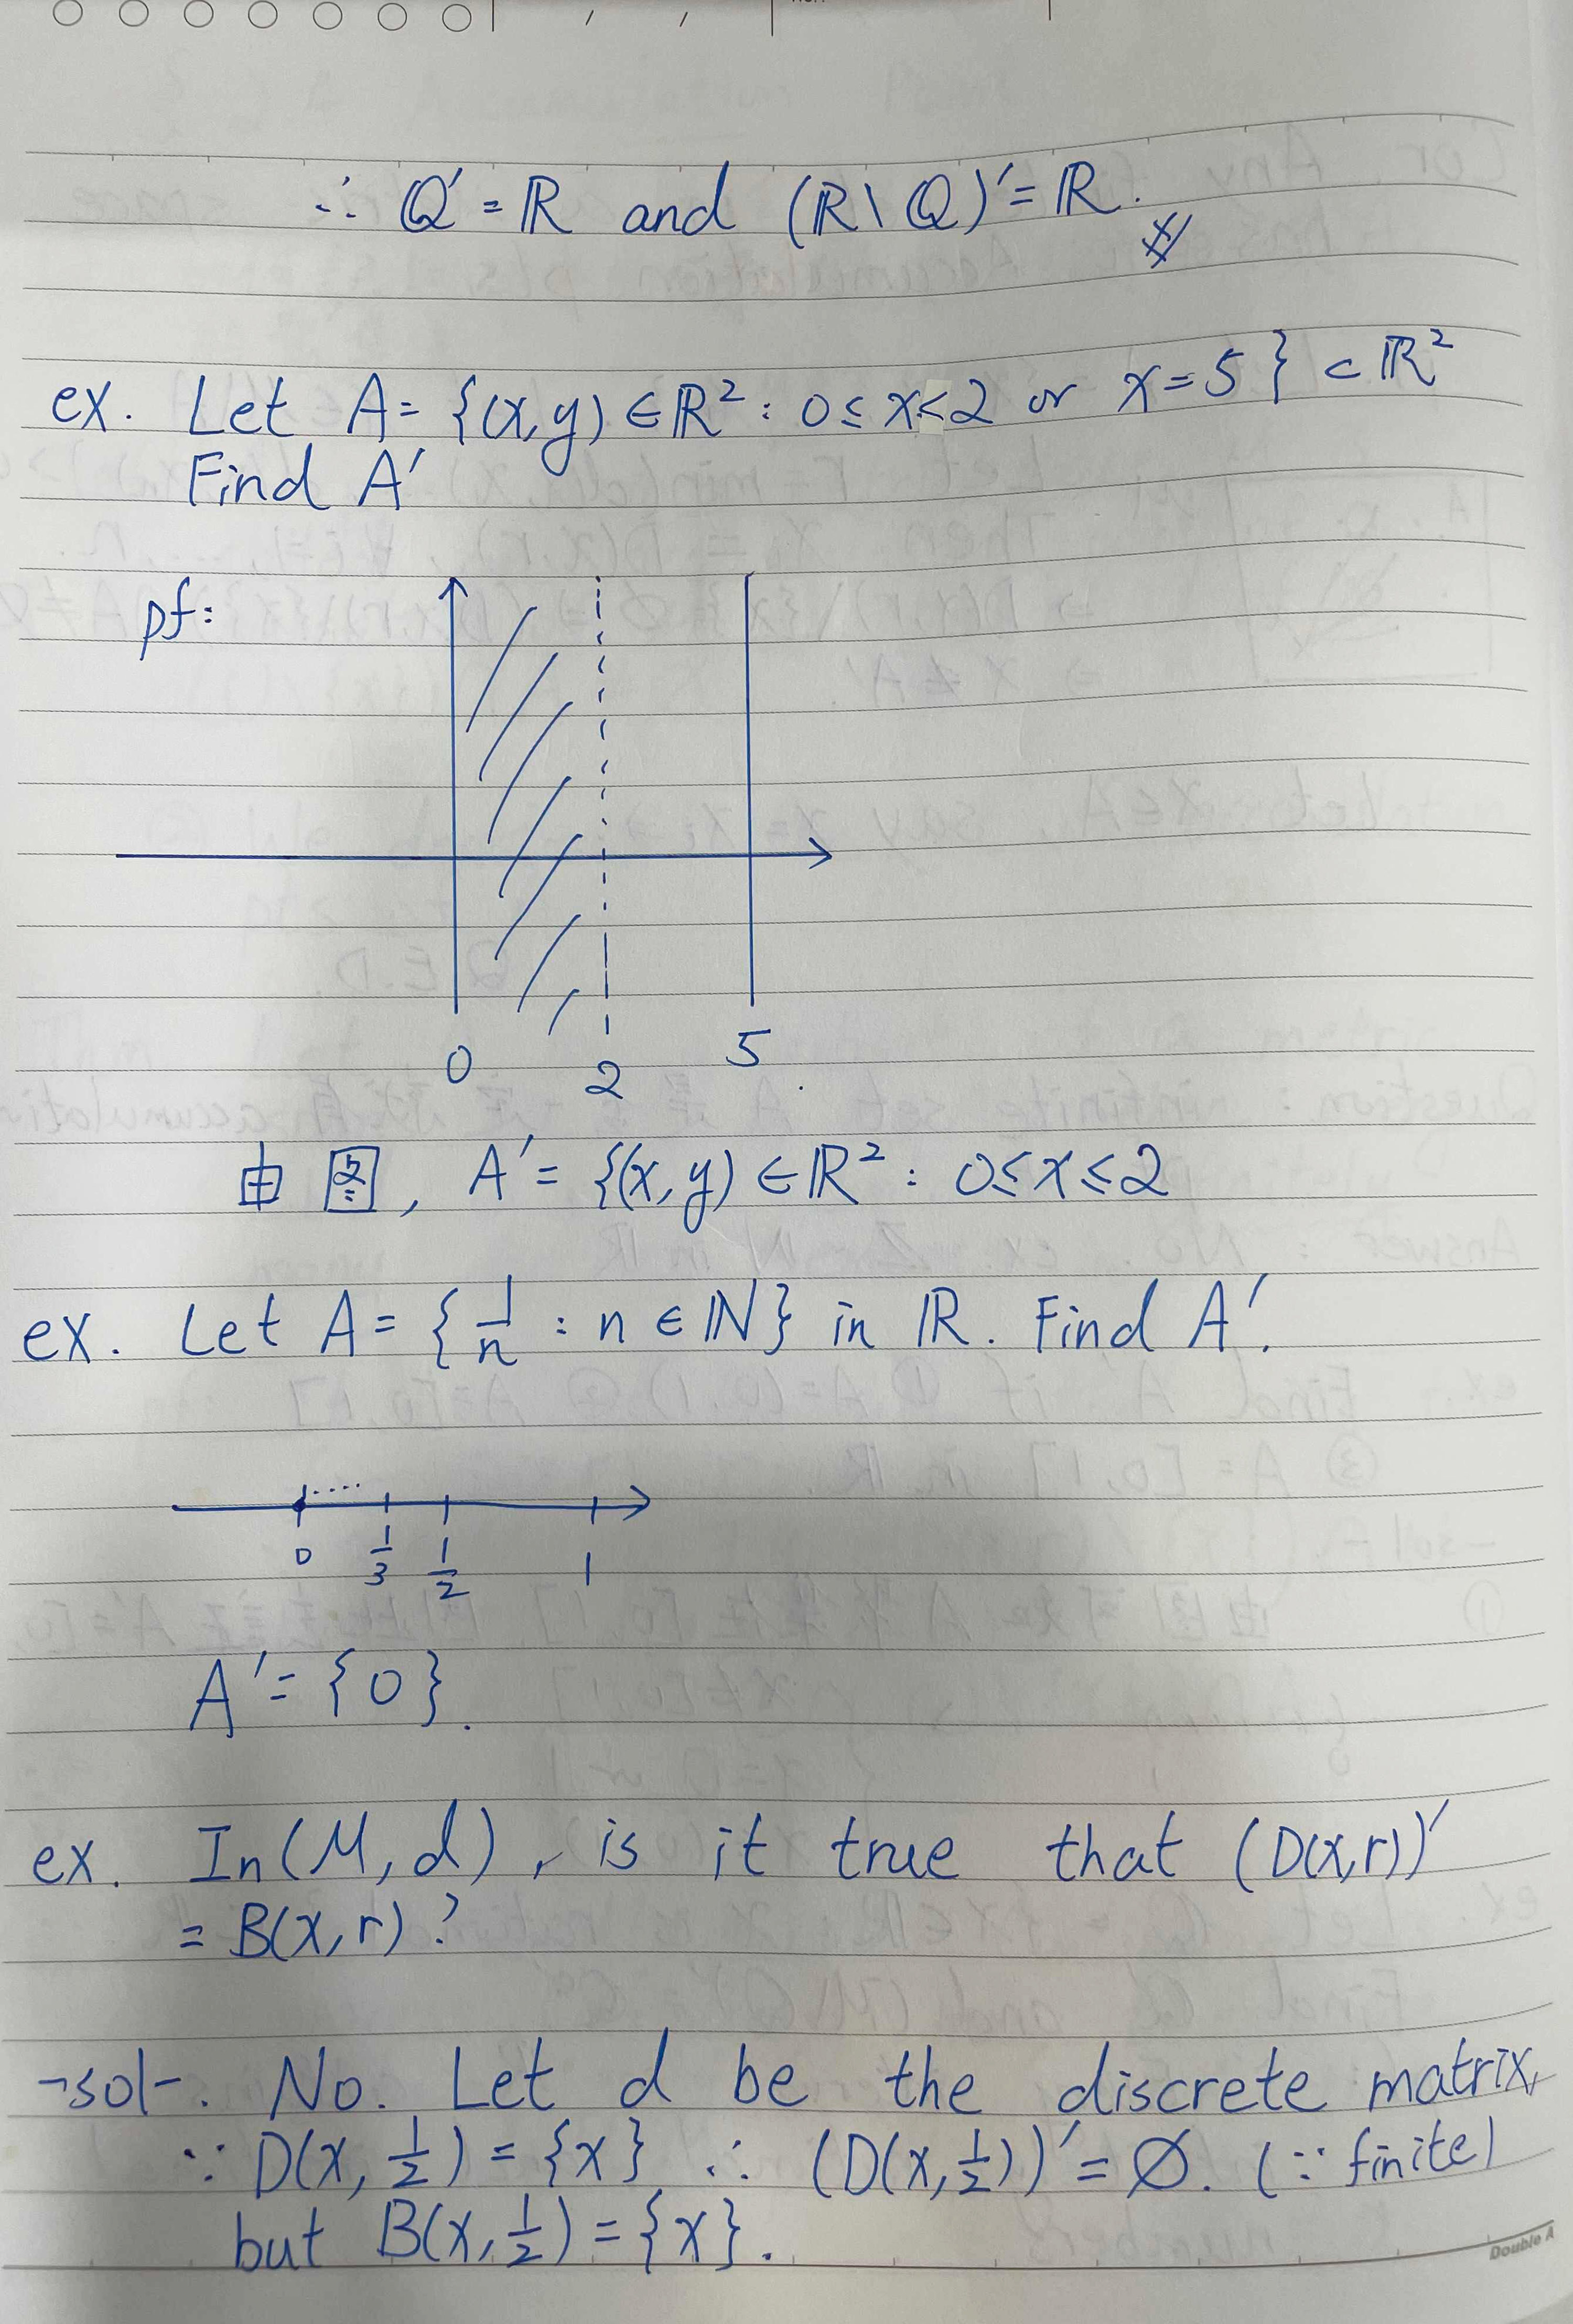 ∴ Q' = ℝ and (ℝ \ Q)' = ℝ.
ex. Let A = {(x,y) ∈ ℝ² : 0 ≤ x < 2 or x = 5} ⊂ ℝ²
Find A'
pf:
0 2 5
由图, A' = {(x,y) ∈ ℝ² : 0 ≤ x ≤ 2
ex. Let A = {1/n : n ∈ ℕ} in ℝ. Find A'.
0 1/3 1/2 1
A' = {0}.
ex. In (M, d), is it true that (D(x,r))'
= B(x,r)?
-sol-. No. Let d be the discrete matrix,
∵ D(x, 1/2) = {x} ∴ (D(x, 1/2))' = ∅. (∵ finite)
but B(x, 1/2) = {x}.
Double A